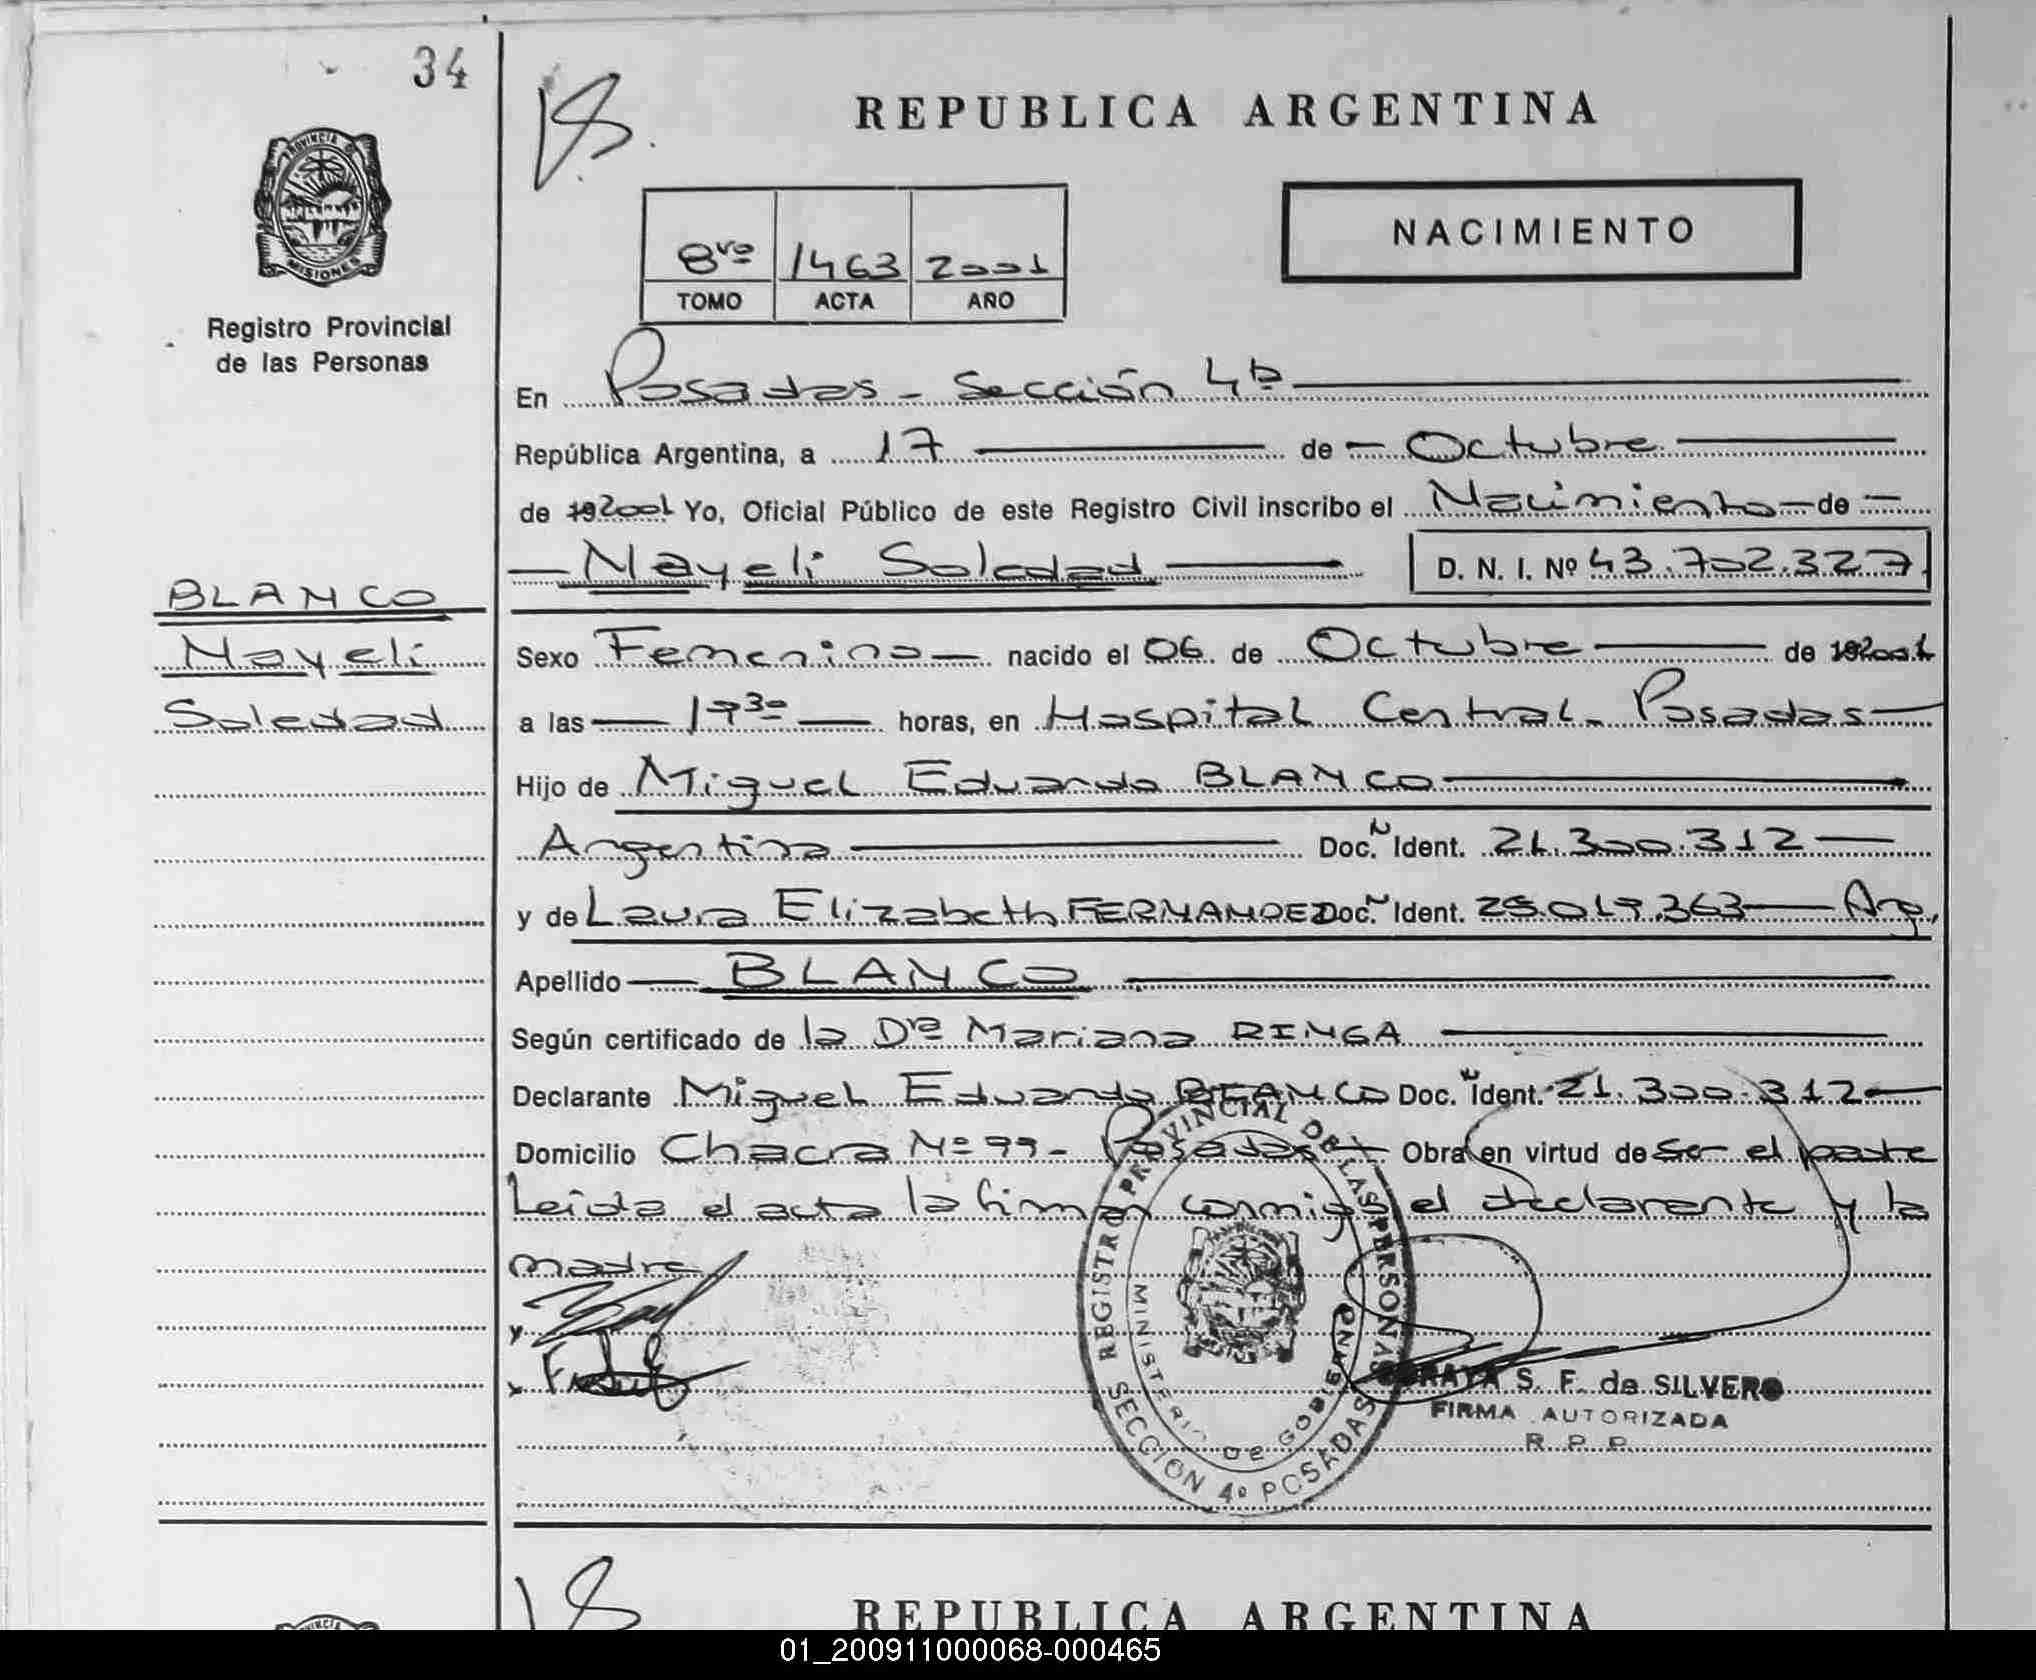 34
REPUBLICA ARGENTINA
PROVINCIA DE
MISIONES
Registro Provincial
de las Personas
NACIMIENTO
8vo 1463 2001
TOMO ACTA AÑO
En Posadas - Sección 4ta
República Argentina, a 17 de Octubre
de 192001 Yo, Oficial Público de este Registro Civil inscribo el Nacimiento de
Nayeli Soledad D. N. I. Nº 43.702.327
BLANCO
Nayeli
Soledad
Sexo Femenino nacido el 06 de Octubre de 192001
a las 1930 horas, en Hospital Central - Posadas
Hijo de Miguel Eduardo BLANCO
Argentina Doc. N Ident. 21.300.312
y de Laura Elizabeth FERNANDEZ Doc. N Ident. 25.019.363 Arg.
Apellido BLANCO
Según certificado de la Dra Mariana RINGA
Declarante Miguel Eduardo BLANCO Doc. N Ident. 21.300.312
Domicilio Chacra Nº 99 - Posadas Obra en virtud de ser el padre
Leída el acta la firman conmigo el declarante y la
madre
REGISTRO PROVINCIAL DE LAS PERSONAS
MINISTERIO DE GOBIERNO
SECCION 4º POSADAS
S. F. de SILVERO
FIRMA AUTORIZADA
R P P
REPUBLICA ARGENTINA
01_200911000068-000465